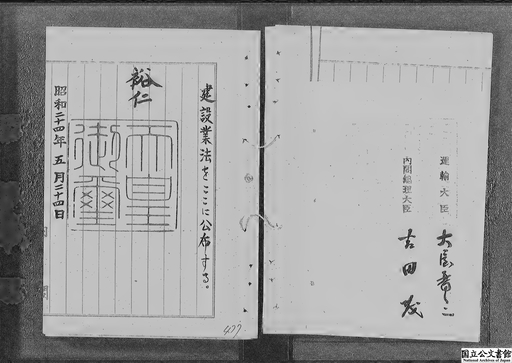 建設業法をここに公布する。
裕仁
天皇
御璽
昭和二十四年五月二十四日
内閣
477
運輸大臣
大屋晋三
内閣総理大臣
吉田茂
国立公文書館
National Archives of Japan